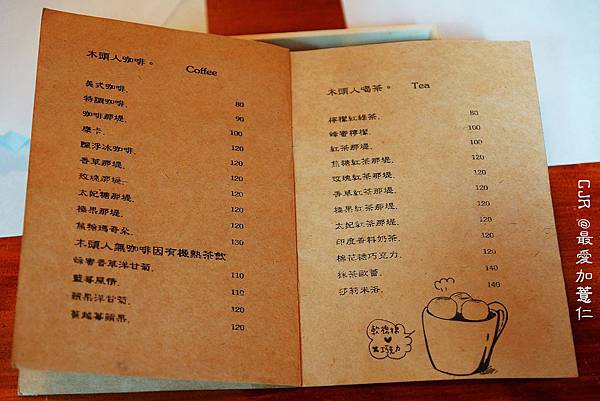 木頭人咖啡。 Coffee
美式咖啡. 80
特調咖啡. 90
咖啡那堤. 100
摩卡. 120
飄浮冰咖啡. 120
香草那堤. 120
玫瑰那堤. 120
太妃糖那堤. 120
榛果那堤. 120
焦糖瑪奇朵. 130
木頭人無咖啡因有機熱茶飲
蜂蜜香草洋甘菊. 110
藍莓風情. 110
蘋果洋甘菊. 120
蔓越莓蘋果. 120
木頭人喝茶。 Tea
檸檬紅綠茶. 80
蜂蜜檸檬. 100
紅茶那堤. 120
焦糖紅茶那堤. 120
玫瑰紅茶那堤. 120
香草紅茶那堤. 120
榛果紅茶那堤. 120
太妃紅茶那堤. 120
印度香料奶茶. 120
棉花糖巧克力. 140
抹茶歐蕾. 140
莎莉米洛.
軟綿綿
巧克力
GJR @最愛加薏仁